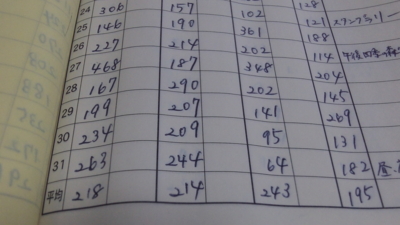 128
24 306 157 102 121 スタンプラリー
25 146 190 361 188
26 227 214 202 114
27 468 187 348 204
28 167 290 202 145
29 199 207 141 269
30 234 209 95 131
31 263 244 64 182
平均 218 214 243 195